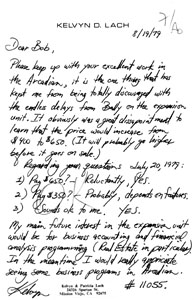 KELVYN D. LACH
8/19/79
Dear Bob,
Please keep up with your excellent work in
the Arcadian, it is the one thing that has
kept me from being totally discouraged with
the endless delays from Bally on the expansion
unit. It obviously was a great disappointment to
learn that the price would increase from
$400 to $650. (It will probably go higher
before it goes on sale.)
Regarding your questions July 20, 1979:
1) Pay $650? — Reluctantly, Yes.
2) Pay $350? — Probably, depends on features.
3) Sounds ok to me. Yes.
My main future interest in the expansion unit
would be for business accounting and financial
analysis programming (Real Estate in particular).
In the meantime I would really appreciate
seeing some business programs in Arcadian.
Kelvyn
Kelvyn & Patricia Lach
Mission Viejo, CA 92675
# 11055.